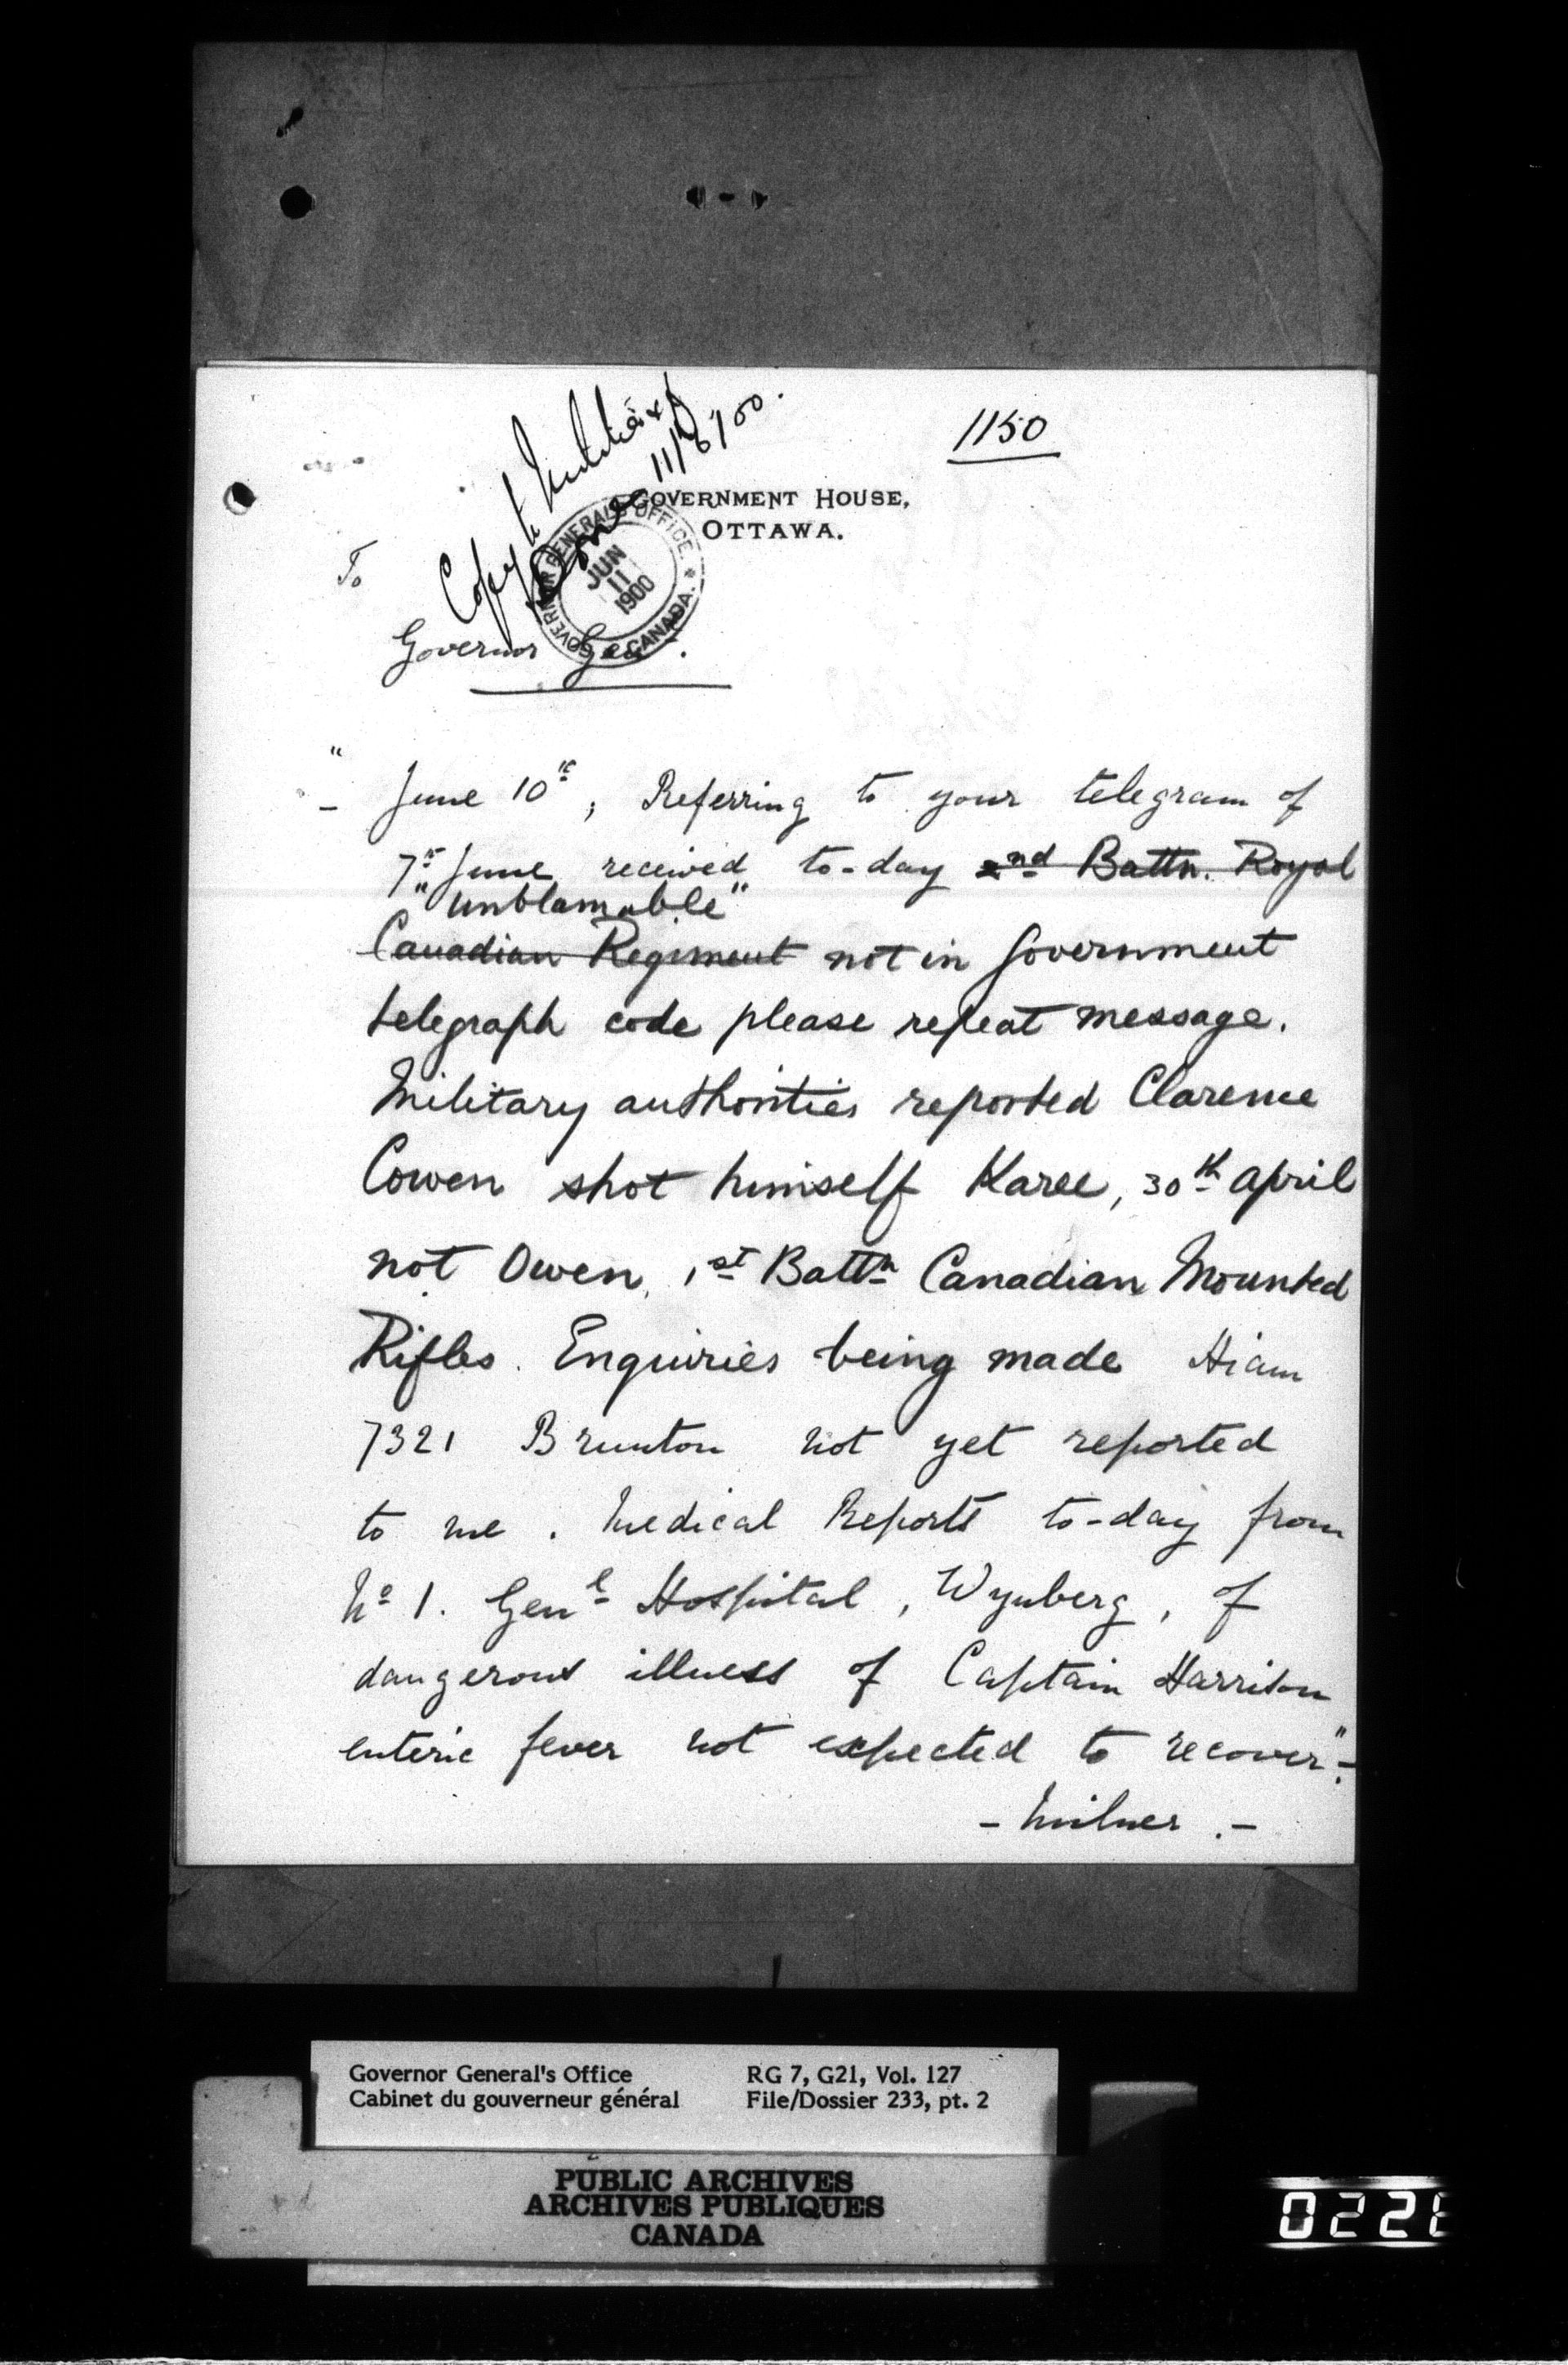 1150
Copy to Militia & D
Done 11/6/00.
GOVERNMENT HOUSE,
OTTAWA.
GOVERNOR GENERAL'S OFFICE. * CANADA.
JUN
11
1900
To
Governor Genl.
" June 10th, Referring to your telegram of
7th June received to-day 2nd Battn. Royal
"unblamable"
Canadian Regiment not in Government
telegraph code please repeat message.
Military authorities reported Clarence
Cowen shot himself Karee, 30th April
not Owen, 1st Battn Canadian Mounted
Rifles. Enquiries being made Hiam
7321 Brunton not yet reported
to me. Medical Reports to-day from
No 1. Genl Hospital, Wynberg, of
dangerous illness of Captain Harrison
enteric fever not expected to recover".-
- Milner.-
Governor General's Office RG 7, G21, Vol. 127
Cabinet du gouverneur général File/Dossier 233, pt. 2
PUBLIC ARCHIVES
ARCHIVES PUBLIQUES
CANADA
0221